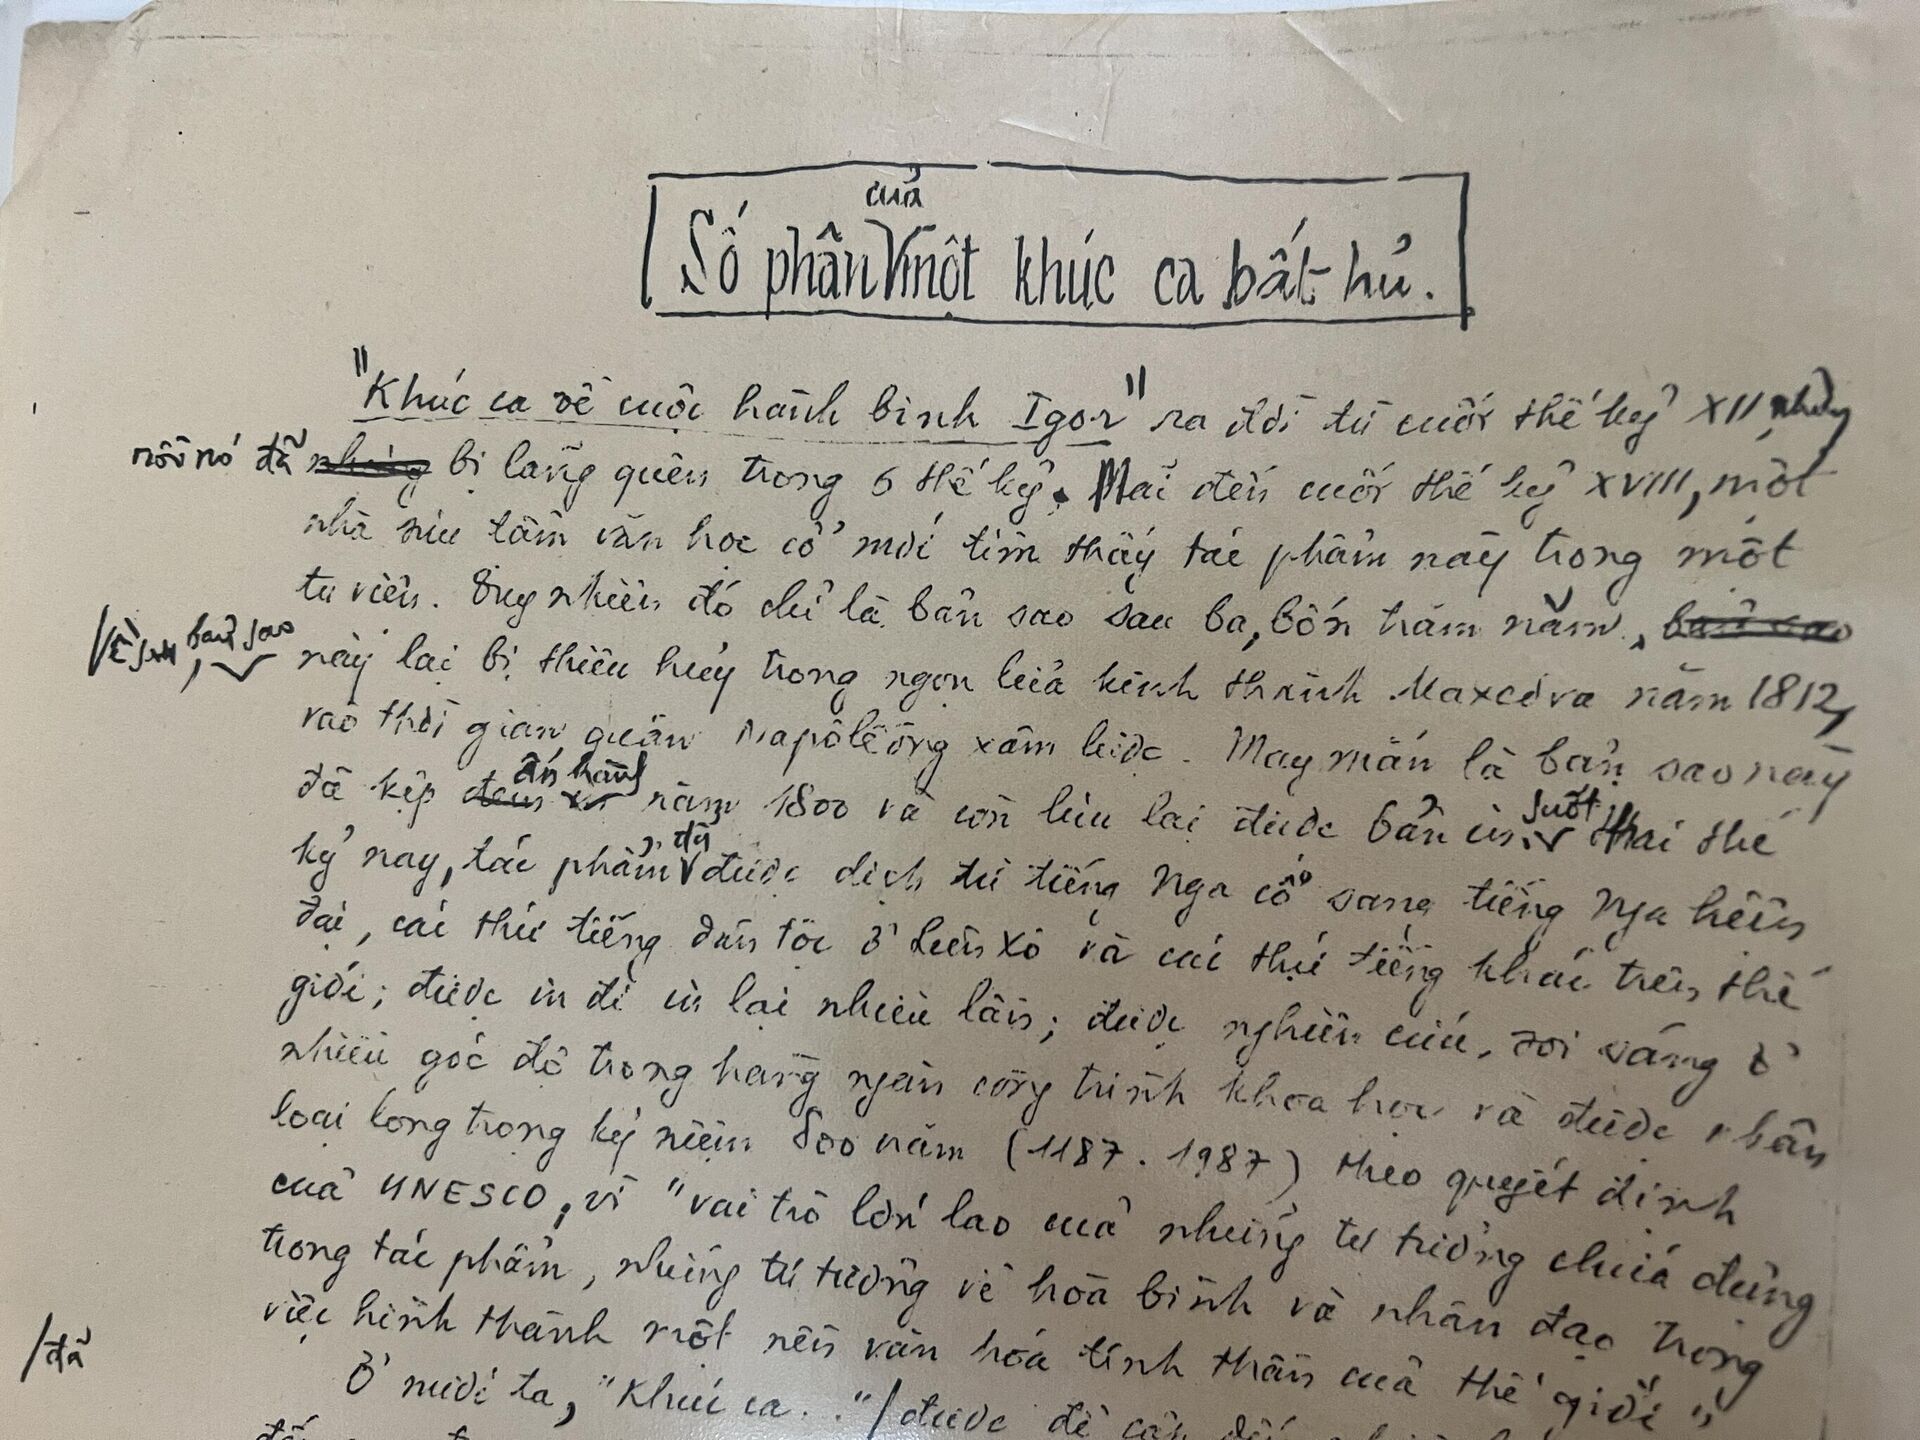 của
Số phận một khúc ca bất hủ.
"Khúc ca về cuộc hành binh Igor" ra đời từ cuối thế kỷ XII nhưng
rồi nó đã nhưng bị lãng quên trong 6 thế kỷ. Mãi đến cuối thế kỷ XVIII, một
nhà sưu tầm văn học cổ mới tìm thấy tác phẩm này trong một
tu viện. Tuy nhiên đó chỉ là bản sao sau ba, bốn trăm năm, bản sao
Về sau, bản sao
này lại bị thiêu hủy trong ngọn lửa kinh thành Maxcơva năm 1812,
vào thời gian quân Napôlêông xâm lược. May mắn là bản sao này
ấn hành
đã kịp đem in năm 1800 và còn lưu lại được bản in. suốt hai thế
kỷ nay, tác phẩm đã được dịch từ tiếng Nga cổ sang tiếng Nga hiện
đại, các thứ tiếng dân tộc ở Liên Xô và các thứ tiếng khác trên thế
giới; được in đi in lại nhiều lần; được nghiên cứu, soi sáng ở
nhiều góc độ trong hàng ngàn công trình khoa học và được nhân
loại long trọng kỷ niệm 800 năm (1187. 1987) theo quyết định
của UNESCO, vì "vai trò lớn lao của những tư tưởng chứa đựng
trong tác phẩm, những tư tưởng về hòa bình và nhân đạo trong
việc hình thành một nền văn hóa tinh thần của thế giới"
/đã
Ở nước ta, "Khúc ca.." / được đề cập đến